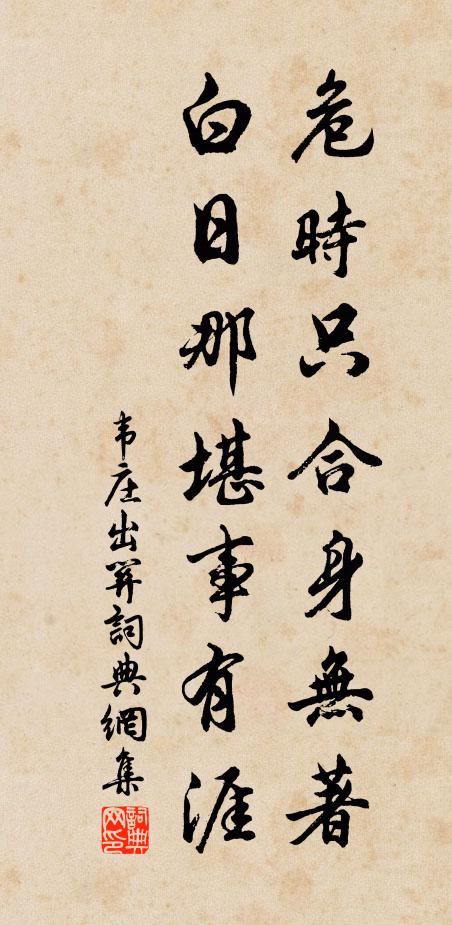 危時只合身無著
白日那堪事有涯
韦庄出关詞典網集
詞典網印